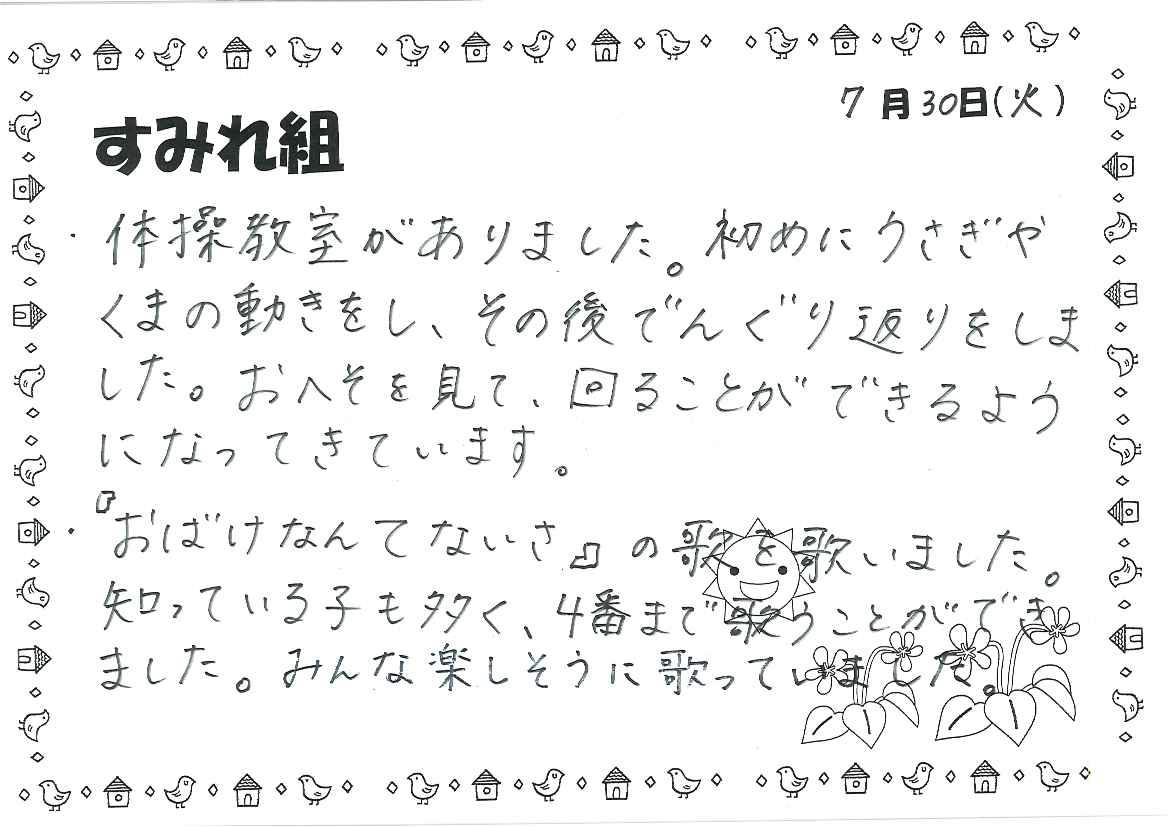 7月30日(火)
すみれ組
・体操教室がありました。初めにうさぎや
くまの動きをし、その後でんぐり返りをしま
した。おへそを見て、回ることができるよう
になってきています。
・『おばけなんてないさ』の歌を歌いました。
知っている子も多く、4番まで歌うことができ
ました。みんな楽しそうに歌っていました。